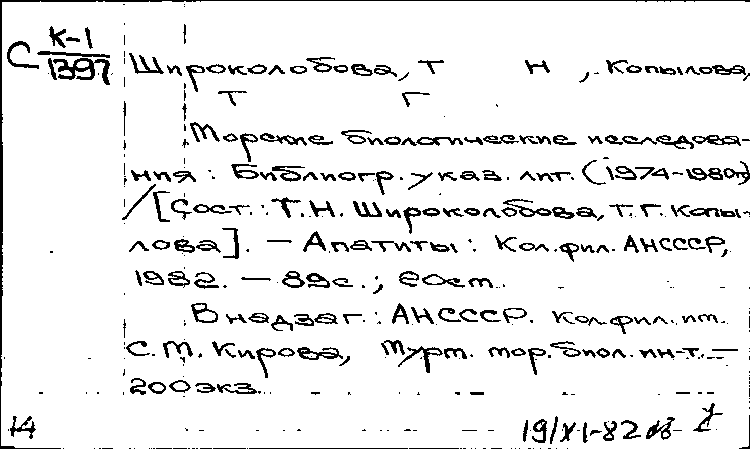 С К-1
1397
Широколобова, Т Н , Копылова,
Т Г
Морские биологические исследова-
ния : Библиогр. указ. лит. (1974-1980гг)
/ [Сост. : Т.Н. Широколобова, Т.Г. Копы-
лова]. — Апатиты : Кол. фил. АНСССР,
1982. — 89с. ; 20см.
В надзаг. : АНСССР. Кол. фил. им.
С. М. Кирова, Мурм. мор. биол. ин-т. —
200экз.
14
19/XI-82